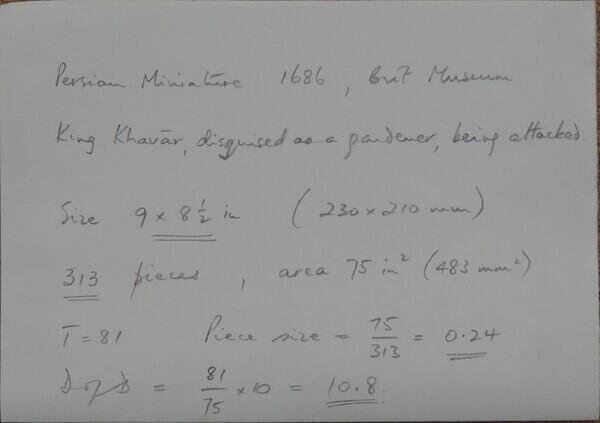 Persian Miniature 1686, Brit Museum
King Khavār, disguised as a gardener, being attacked
Size 9 x 8 1/2 in (230 x 210 mm)
313 pieces, area 75 in² (483 mm²)
T = 81 Piece size = 75/313 = 0.24
D of D = 81/75 x 10 = 10.8